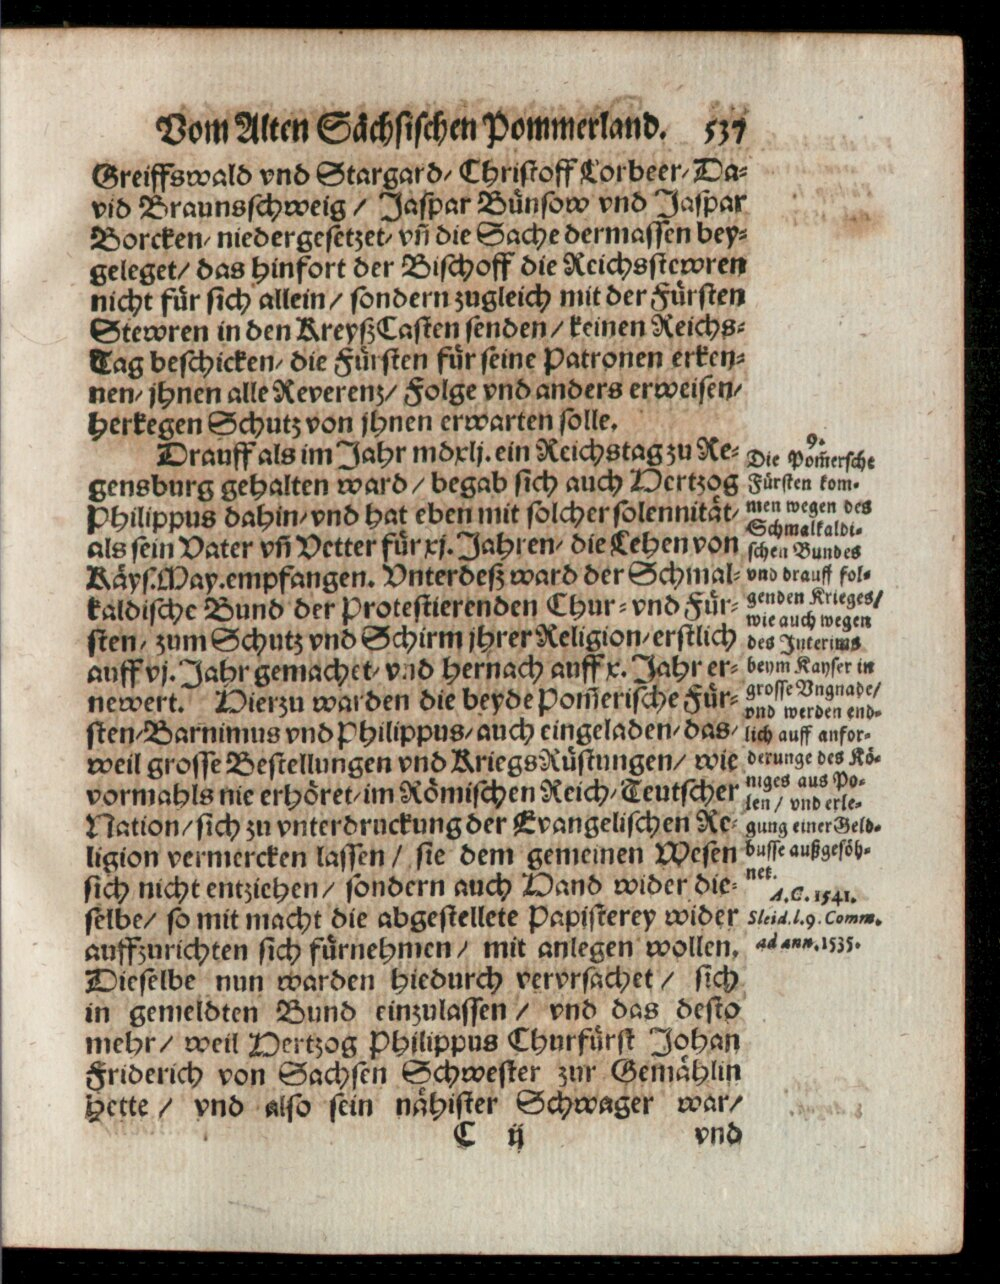 Vom Alten Sächsischen Pommerland. 537
Greiffswald vnd Stargard/ Christoff Lorbeer/ Da=
vid Braunsschweig / Jaspar Bünsow vnd Jaspar
Borcken/ niedergesetzet/ vn̄ die Sache dermassen bey=
geleget/ das hinfort der Bischoff die Reichsstewren
nicht für sich allein / sondern zugleich mit der Fürsten
Stewren in den KreyßCasten senden / keinen Reichs=
Tag beschicken/ die Fürsten für seine Patronen erken=
nen/ jhnen alle Reverenz/ Folge vnd anders erweisen/
herkegen Schutz von jhnen erwarten solle.
Drauff als im Jahr mdxlj. ein Reichstag zu Re=
gensburg gehalten ward / begab sich auch Hertzog
Philippus dahin/ vnd hat eben mit solcher solennität/
als sein Vater vn̄ Vetter für xj. Jahren/ die Lehen von
Käys. May. empfangen. Vnterdeß ward der Schmal=
kaldische Bund der Protestierenden Chur= vnd Für=
sten/ zum Schutz vnd Schirm jhrer Religion/ erstlich
auff vj. Jahr gemachet/ vnd hernach auff x. Jahr er=
newert. Hierzu warden die beyde Pom̄erische Für=
sten/ Barnimus vnd Philippus/ auch eingeladen/ das/
weil grosse Bestellungen vnd KriegsRüstungen/ wie
vormahls nie erhöret/ im Römischen Reich/ Teutscher
Nation/ sich zu vnterdruckung der Evangelischen Re=
ligion vermercken lassen / sie dem gemeinen Wesen
sich nicht entziehen / sondern auch Hand wider die=
selbe/ so mit macht die abgestellete Papisterey wider
auffzurichten sich fürnehmen / mit anlegen wollen.
Dieselbe nun warden hiedurch vervrsachet / sich
in gemeldten Bund einzulassen / vnd das desto
mehr / weil Hertzog Philippus Churfürst Johan
Friderich von Sachsen Schwester zur Gemählin
hette / vnd also sein nähister Schwager war/
C ij vnd
9.
Die Pom̄ersche
Fürsten kom=
men wegen des
Schmalkaldi=
schen Bundes
vnd drauff fol=
genden Krieges/
wie auch wegen
des Interims
beym Kayser in
grosse Vngnade/
vnd werden end=
lich auff anfor=
derunge des Kö=
niges aus Po=
len / vnd erle=
gung einer Geld=
busse außgesöh=
net.
A.C. 1541.
Sleid. l. 9. Comm.
ad ann. 1535.